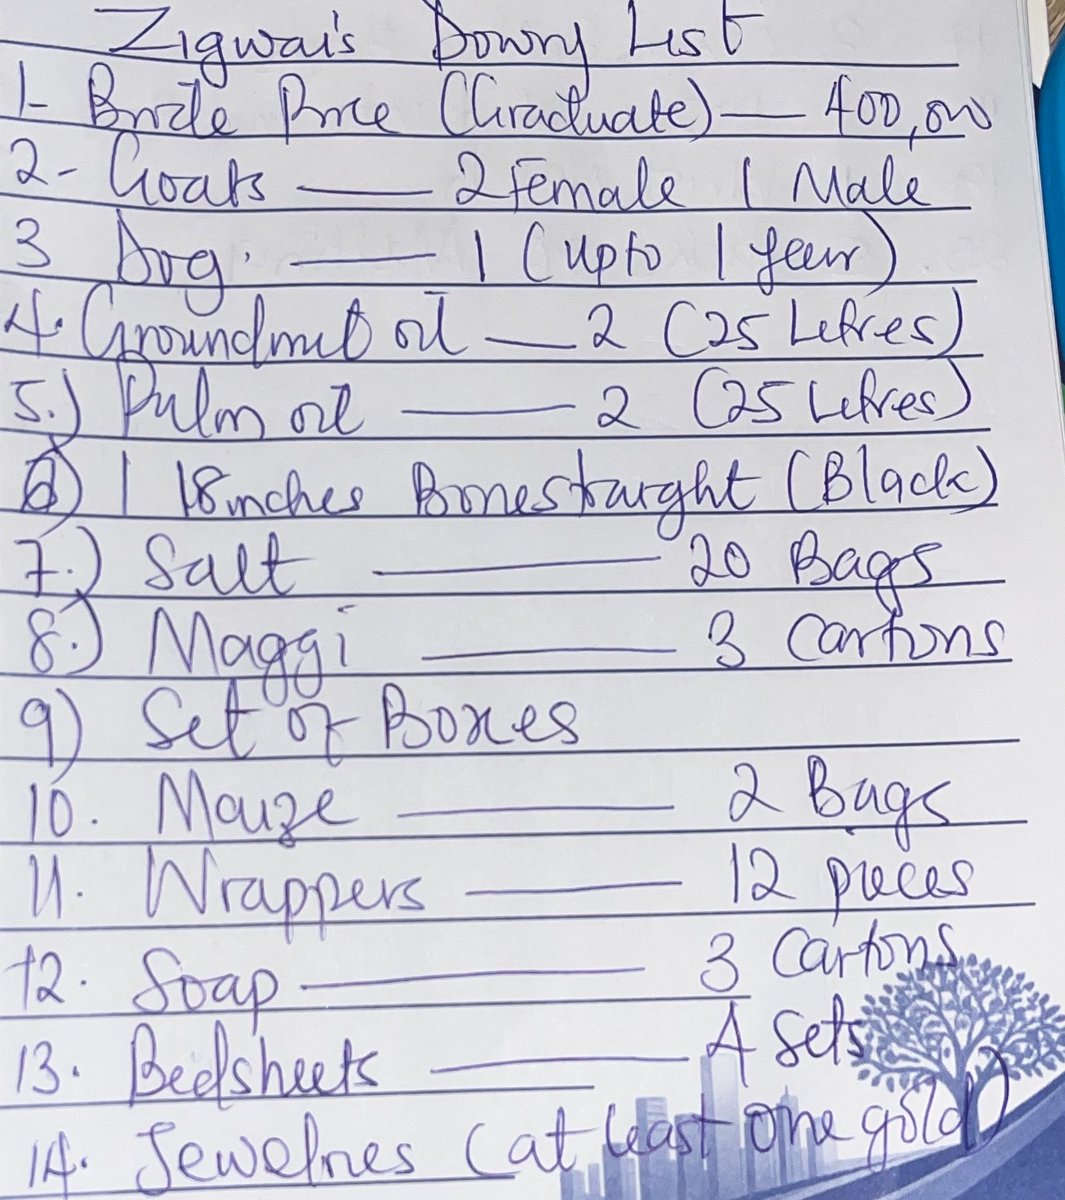 Zigwai's Dowry List
1- Bride Price (Graduate) — 400,000
2- Goats — 2 Female 1 Male
3 Dog. — 1 (upto 1 year)
4. Groundnut oil — 2 (25 Litres)
5.) Palm oil — 2 (25 Litres)
6) 1 18inches Bonestraight (Black)
7.) Salt — 20 Bags
8.) Maggi — 3 Cartons
9) Set of Boxes
10. Maize — 2 Bags
11. Wrappers — 12 pieces
12. Soap — 3 Cartons
13. Bedsheets — 4 Sets
14. Jewelries (at least one gold)